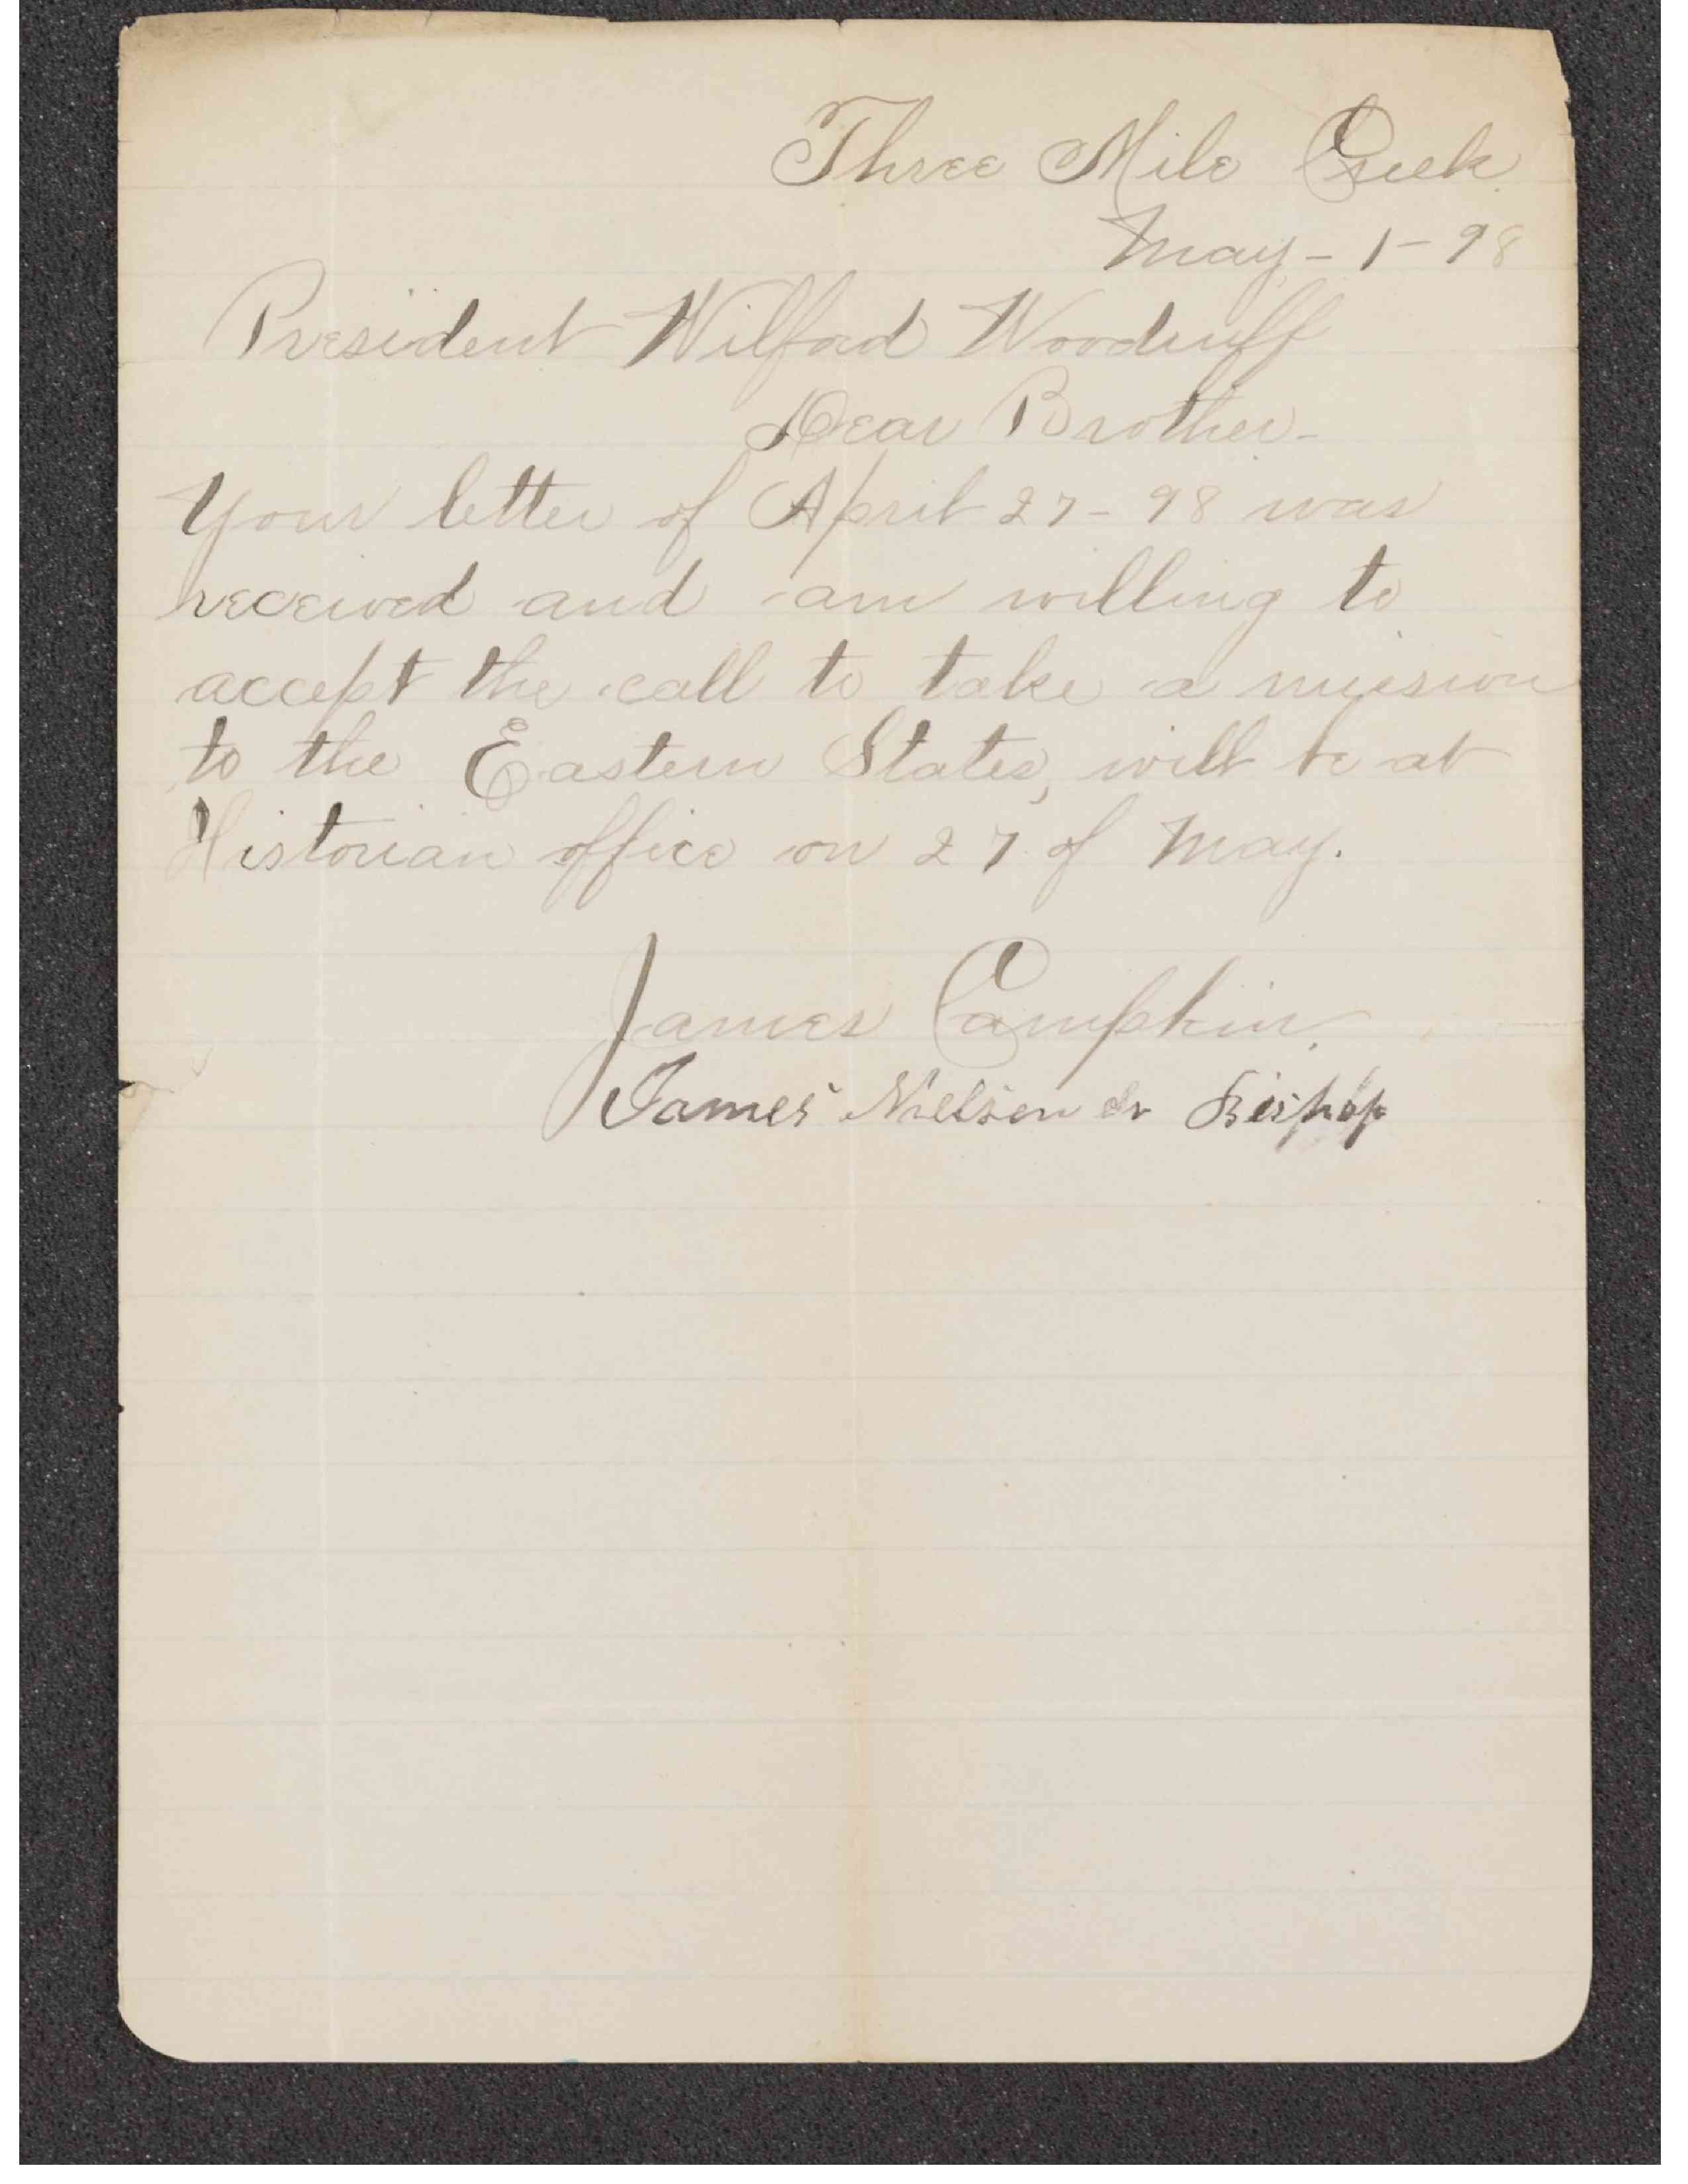 Three Mile Creek
May - 1 - 98
President Wilford Woodruff
Dear Brother -
Your letter of April 27 - 98 was
received and am willing to
accept the call to take a mission
to the Eastern States, will be at
Historian office on 27 of May.
James Campkin.
James Nielsen Sr Bishop